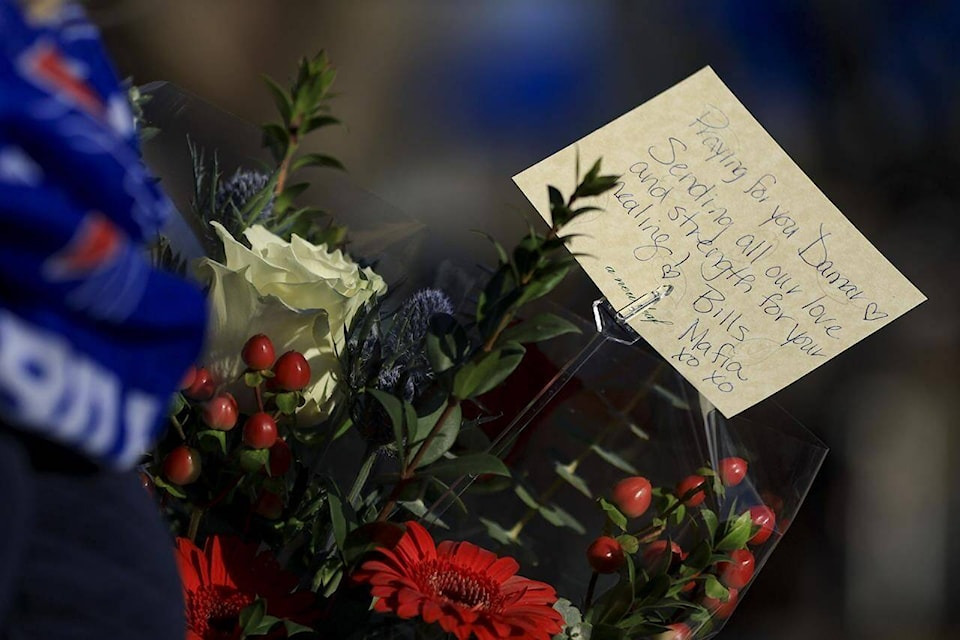 Praying for you Damar ♡
Sending all our love
and strength for your
healing! ♡ Bills
Mafia
xo xo